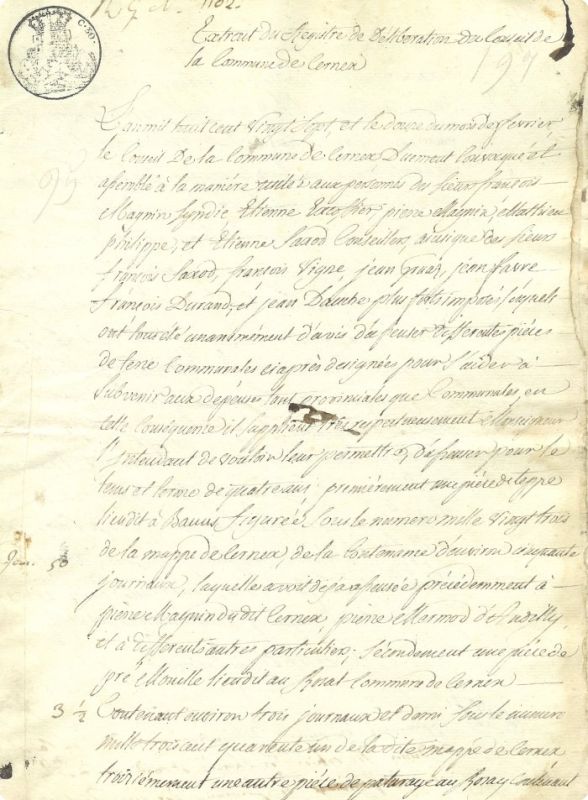 R G N. 1102.
C. 50.
Extrait du Registre de Délibération du Conseil de
la Commune de Cernex
197
L'an mil huit cent vingt sept, et le douze du mois de fevrier,
le Conseil De la Commune de Cernex Duement Convoqué et
assemblé à la manière usitée aux personnes des sieurs françois
Magnin Syndic, Etienne pierre Magnin, Mathieu
philippe, et Etienne Saxod Conseillers, ainsique des sieurs
françois Saxod, françois Vigne, jean jean favre
françois Durand, et jean plus forts imposés lesquels
ont tous été unanimément d'avis d'affenser differentes pièces
de terre Communales ciaprès designées pour s'aider à
subvenir aux dépenses tant provinciales que Communales, en
telle Conséquence il supplient très respectueusement Monsieur
l'jntendant de vouloir leur permettre, d'affenser pour le
tems et terme de quatre ans; premièrement une pièce de teppe
lieudit à Bavus figurée sous le numero mille vingt trois
de la mappe de Cernex, de la Contenance d'environ cinquante
Jour. 50
journaux, laquelle avoit déja affensée précédemment à
pierre Magnin dudit Cernex, pierre Mermod d'Andilly,
et à differents autres particulier; sécondement une pièce de
pré Mouille lieudit au Rosat Commune de Cernex
3 1/2
Contenant environ trois journaux et demi sous le numero
mille trois cent quarente un de la dite mappe de Cernex
troisiémement une autre pièce de paturage au Rosay Contenant